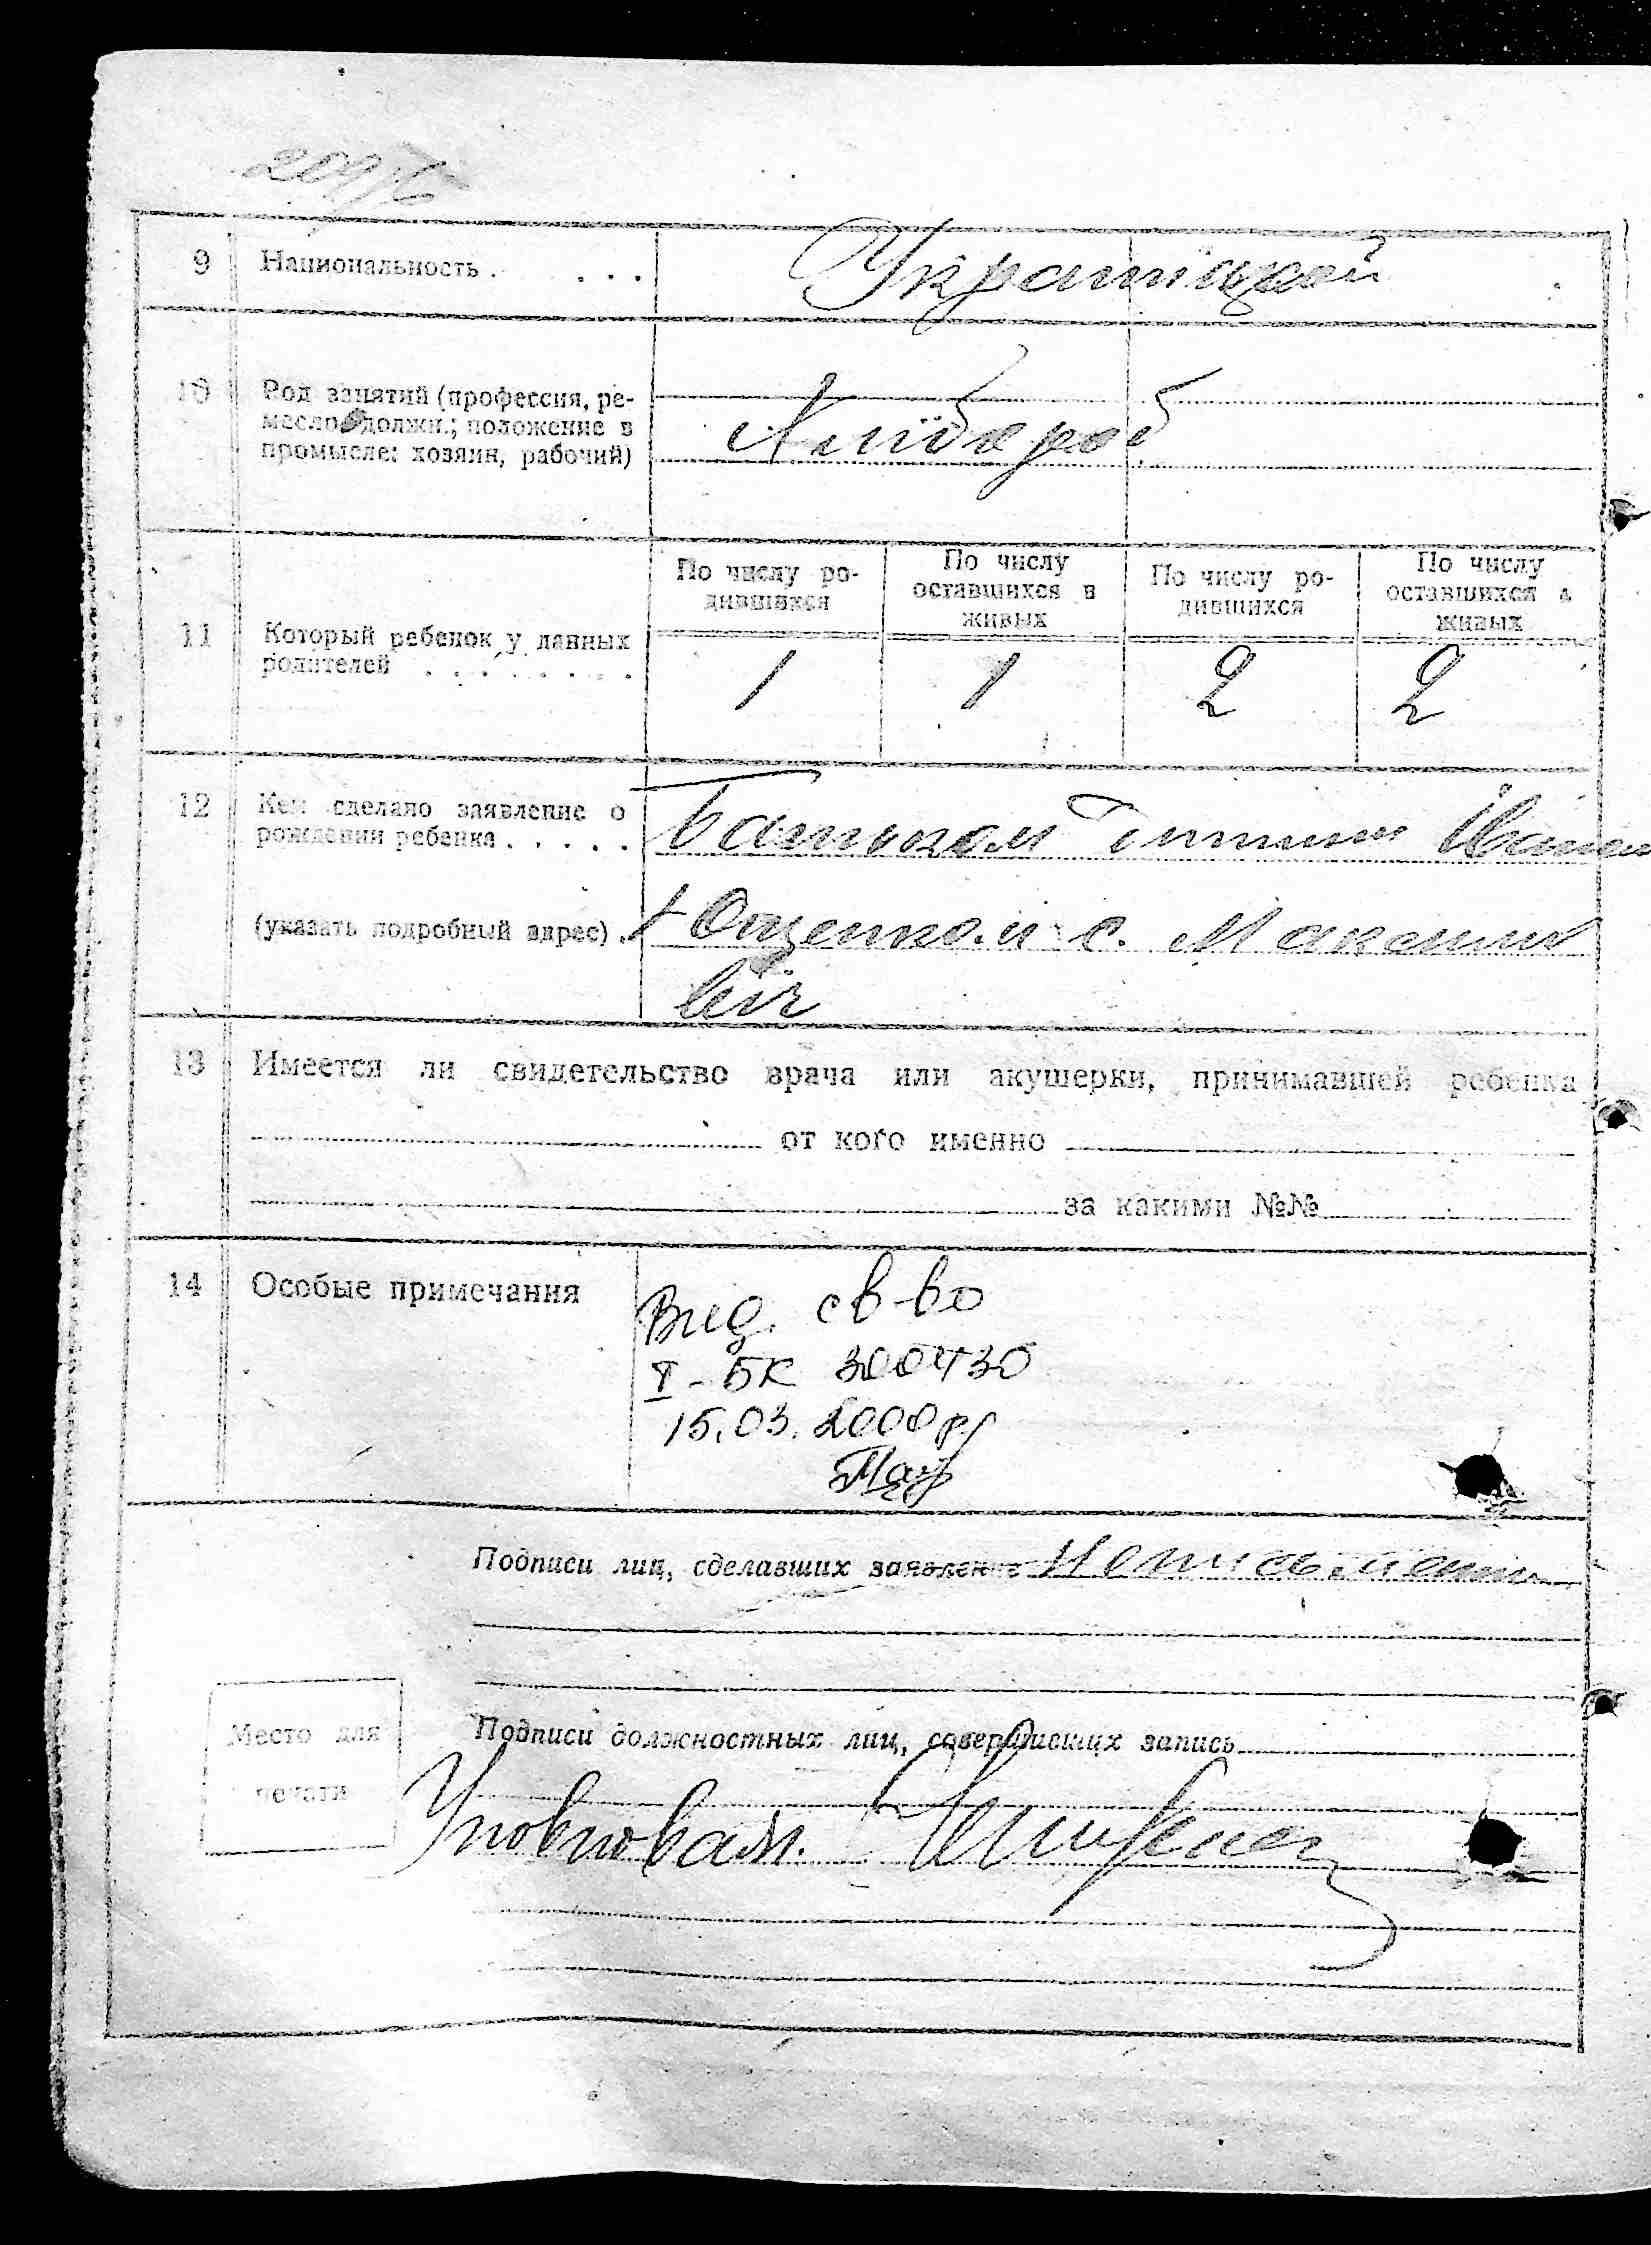 9 Национальность . . . . Украинцкой
10 Род занятий (профессия, ре-
месло, должн.; положение в
промысле: хозяин, рабочий)
Хлібороб
По числу ро-
дившихся
По числу
оставшихся в
живых
По числу ро-
дившихся
По числу
оставшихся в
живых
11 Который ребенок у данных
родителей . . . . . . . .
1 1 2 2
12 Кем сделано заявление о
рождении ребенка . . . . .
Батьком Іваном
(указать подробный адрес) .
Ющенком с. Максими
вір
13 Имеется ли свидетельство врача или акушерки, принимавшей ребенка
от кого именно
за какими №№
14 Особые примечания
Вид. св-во
I-БК 300430
15.03.2000р
Подписи лиц, сделавших заявление Неписьменни
Место для
печати
Подписи должностных лиц, совершивших запись
Уповновам.